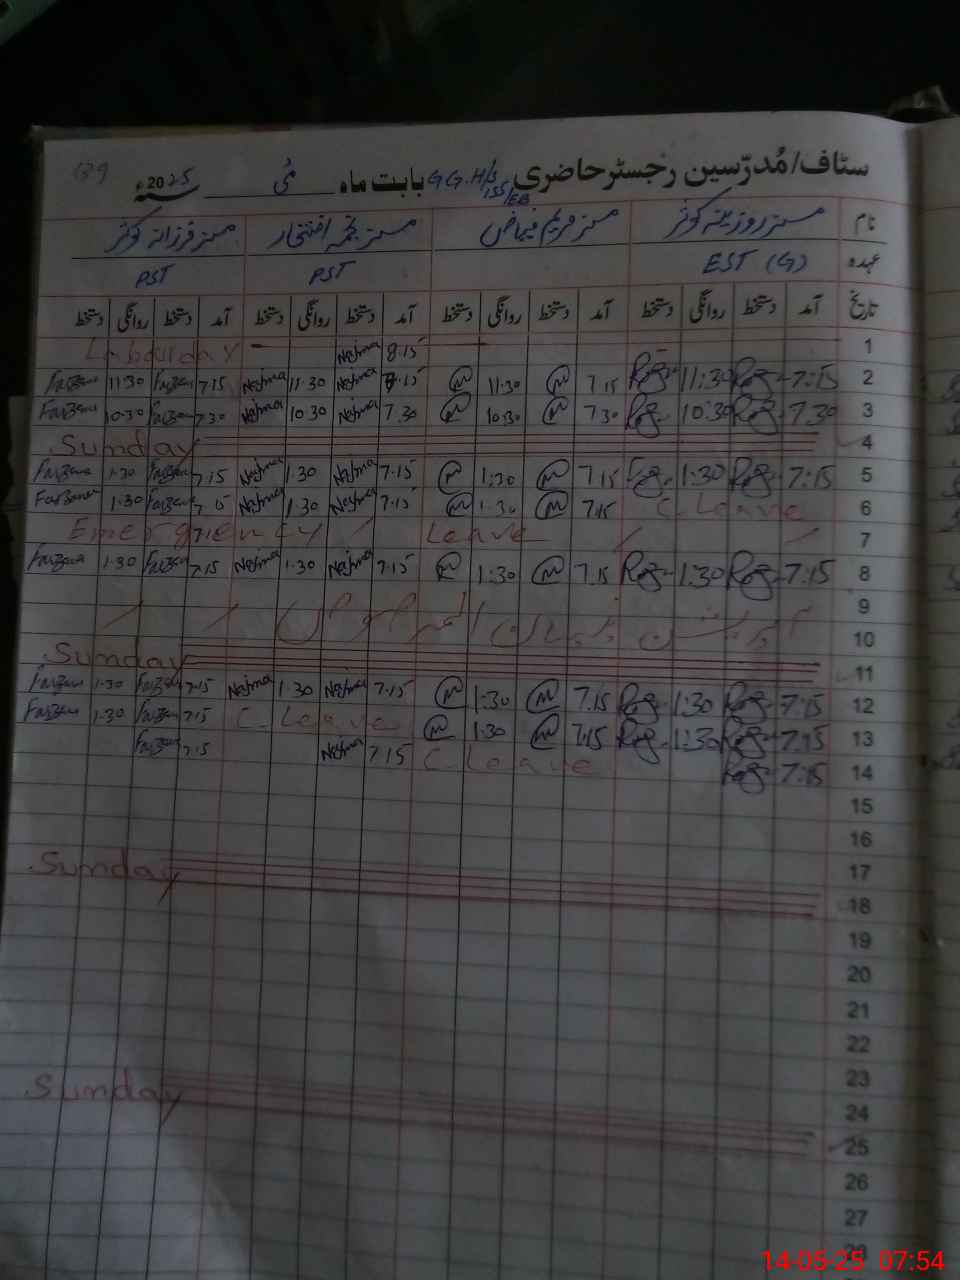 139
سٹاف/مُدرّسین رجسٹر حاضری GG.H/S 155/EB بابت ماہ مُی سنہ 2025ء
نام مسز روزینہ کوثر مسز مریم فیاض مسز نجمہ افتخار مسز فرزانہ کوثر
عہدہ EST (G) PST PST
تاریخ آمد دستخط روانگی دستخط آمد دستخط روانگی دستخط آمد دستخط روانگی دستخط آمد دستخط روانگی دستخط
Labour day Najma 8.15 1
Farzana 11:30 Farzana 7.15 Najma 11.30 Najma 7.15 11.30 7.15 11:30 7:15 2
Farzana 10:30 Farzana 7.30 Najma 10.30 Najma 7.30 10:30 7.30 10:30 7.30 3
Sunday 4
Farzana 1.30 Farzana 7.15 Najma 1.30 Najma 7.15 1:30 7.15 1:30 7:15 5
Farzana 1.30 Farzana 7.15 Najma 1.30 Najma 7.15 1.30 7.15 C. Leave 6
Emergiency Leave 7
Farzana 1.30 Farzana 7.15 Najma 1.30 Najma 7.15 1:30 7.15 1:30 7:15 8
9
10
Sunday 11
Farzana 1.30 Farzana 7.15 Najma 1.30 Najma 7.15 1:30 7.15 1:30 7:15 12
Farzana 1.30 Farzana 7.15 C. Leave 1:30 7.15 1:30 7:15 13
Farzana 7.15 Najma 7.15 C. Leave 7:15 14
15
16
17
Sunday 18
19
20
21
22
23
24
Sunday 25
26
27
28
14-05-25 07:54